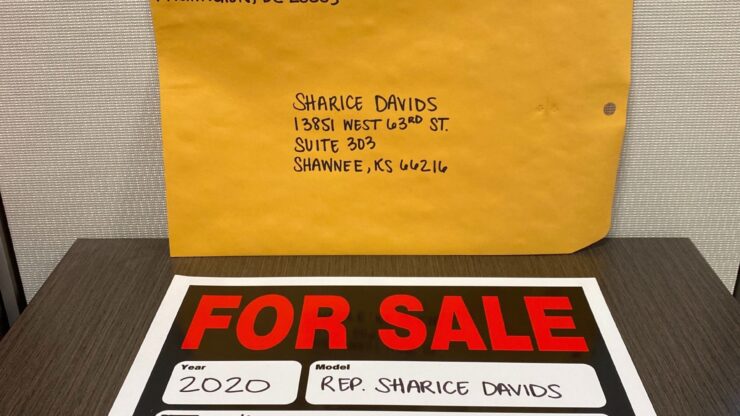 SHARICE DAVIDS
13851 WEST 63RD ST.
SUITE 303
SHAWNEE, KS 66216
FOR SALE
Year
2020
Model
REP. SHARICE DAVIDS